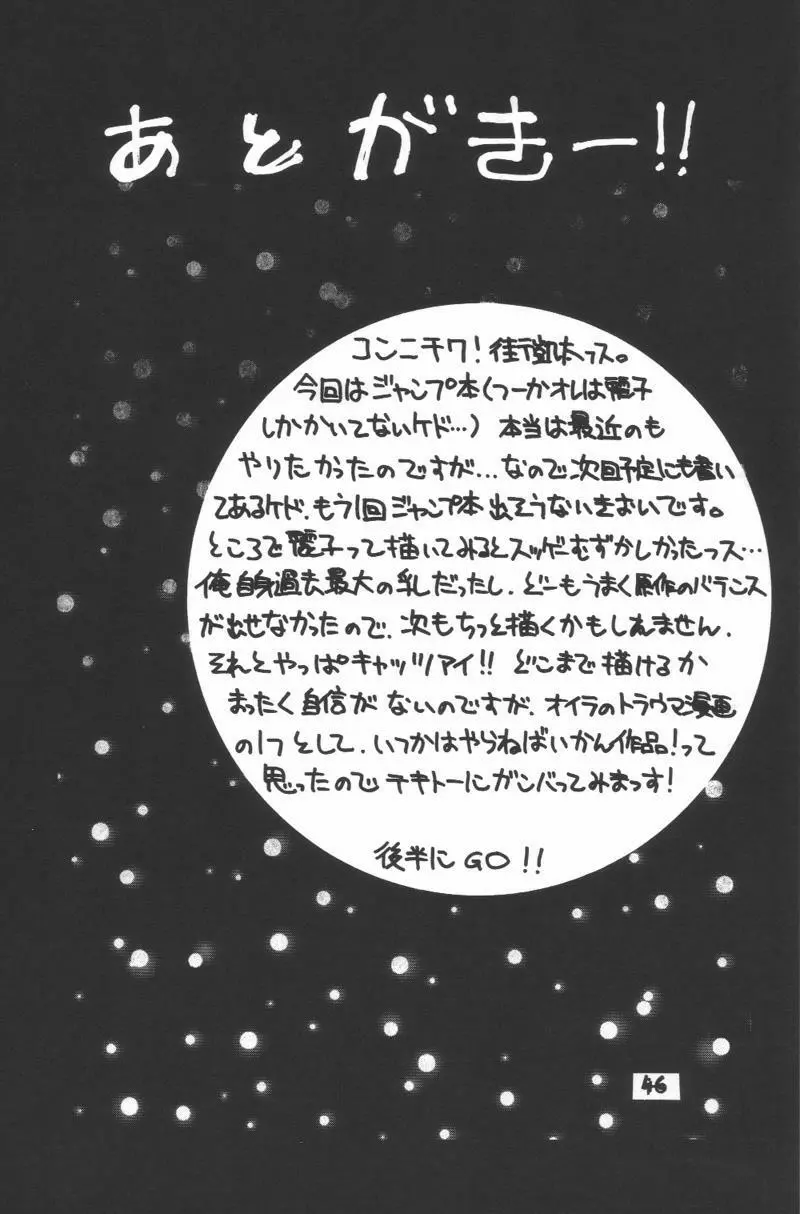 あとがきー!!
コンニチワ！街道はっス。
今回はジャンプ本（つーかオレは麗子
しかかいてないケド…）本当は最近のも
やりたかったのですが…なので次回予定にも書い
てあるケド、もう1回ジャンプ本出そうないきおいです。
ところで麗子って描いてみるとスッゲーむずかしかったっス…
俺自身過去最大の乳だったし、どーもうまく原作のバランス
が出せなかったので、次もちっと描くかもしれません、
それとやっぱキャッツアイ!! どこまで描けるか
まったく自信がないのですが、オイラのトラウマ漫画
の1つとして、いつかはやらねばいかん作品！って
思ったのでテキトーにガンバってみまっす！
後半にGO!!
46